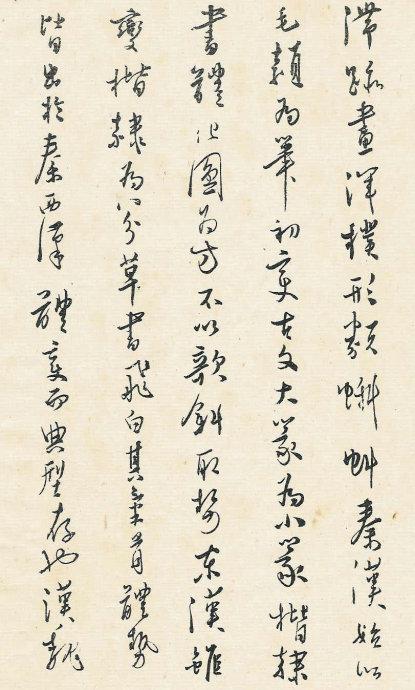 滯跡畫渾樸形類蝌蚪秦漢始以
毛穎為筆初變古文大篆為小篆楷隸
書體化圓為方不以欹斜取勢東漢雖
變楷隸為八分草書飛白其氣骨體勢
皆出於秦西漢體變而典型存也漢魏